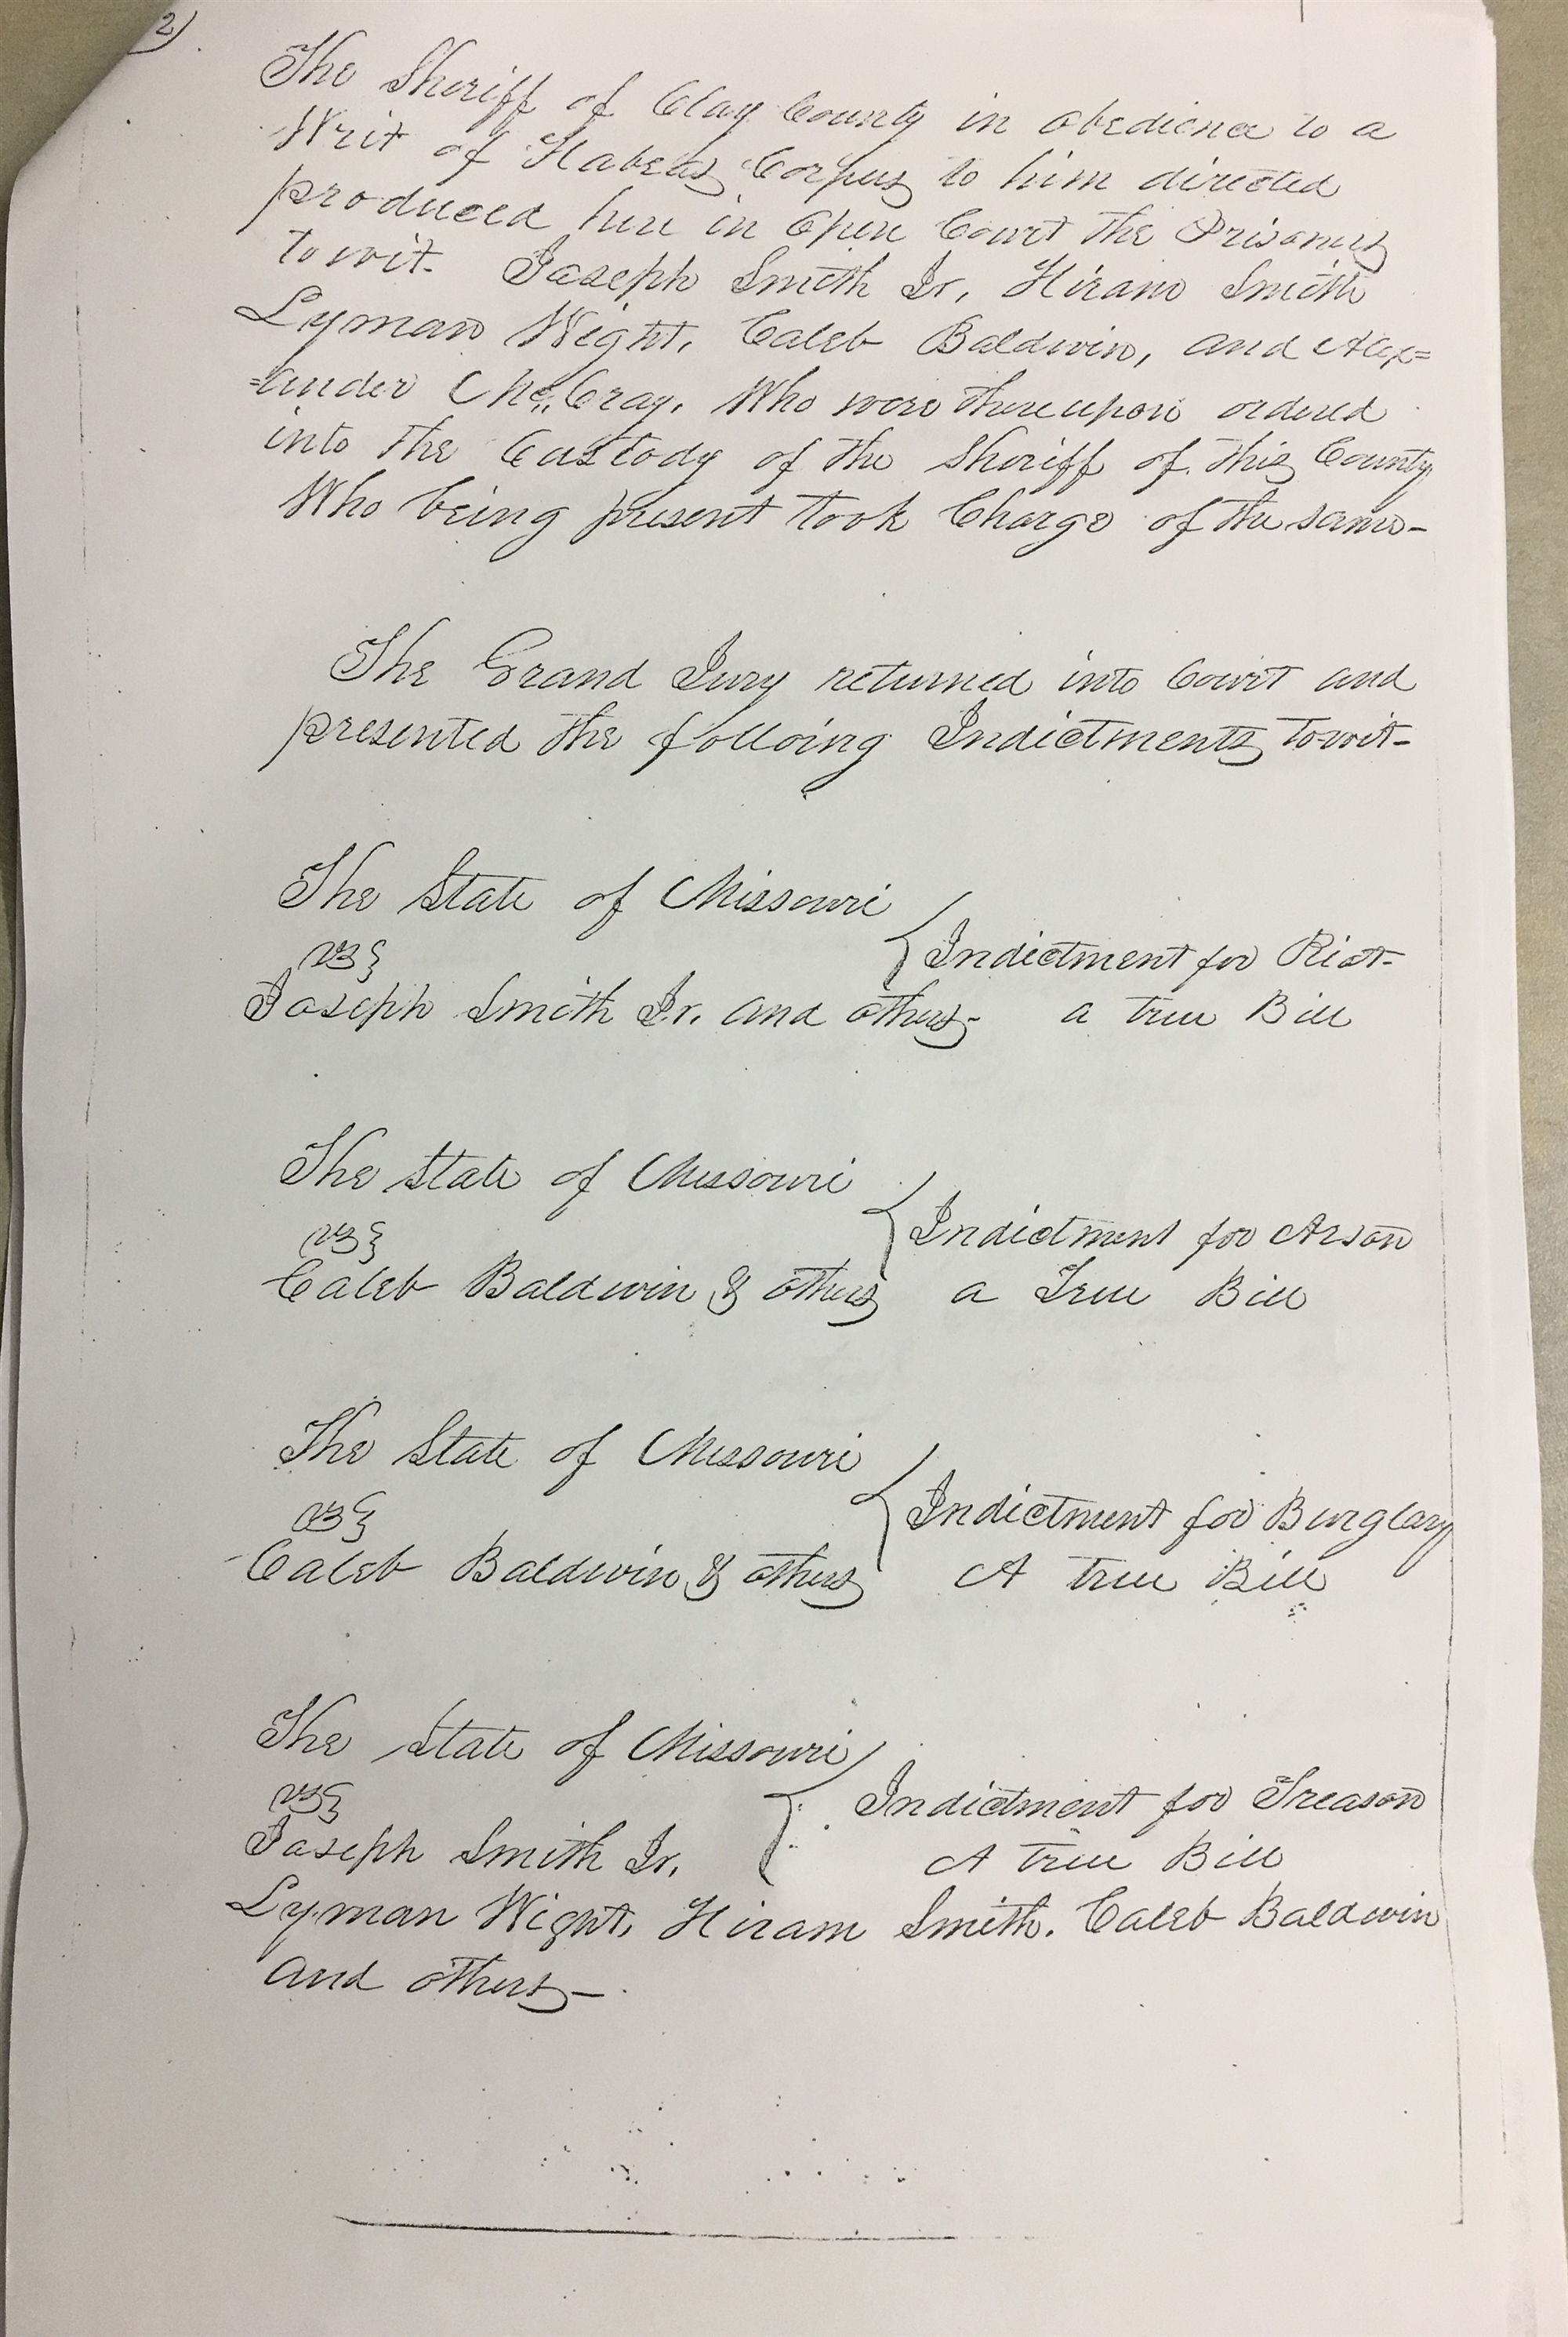 2)
The Sheriff of Clay County in obedience to a
Writ of Habeas Corpus to him directed
produced here in Open Court the Prisoners
towit. Joseph Smith Jr, Hiram Smith
Lyman Wight, Caleb Baldwin, and Alex=
=ander McCray, Who were thereupon ordered
into the Custody of the Sheriff of this County
Who being present took Charge of the same-
The Grand Jury returned into Court and
presented the folloing Indictments towit-
The State of Missouri
vs }
{ Indictment for Riot-
Joseph Smith Jr. and others- a true Bill
The State of Missouri
vs }
{ Indictment for Arson
Caleb Baldwin & others a True Bill
The State of Missouri
vs }
{ Indictment for Burglary
Caleb Baldwin & others A true Bill
The State of Missouri
vs }
{ Indictment for Treason
Joseph Smith Jr. A true Bill
Lyman Wight, Hiram Smith. Caleb Baldwin
and others-